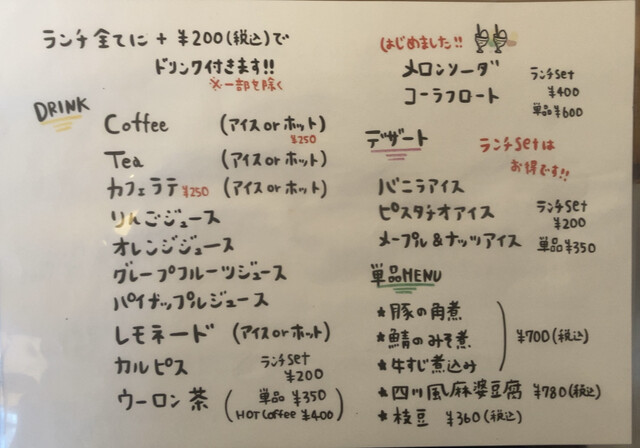 ランチ全てに + ¥200(税込)で
ドリンク付きます!!
※一部を除く
DRINK
Coffee (アイス or ホット)
¥250
Tea (アイス or ホット)
カフェラテ ¥250 (アイス or ホット)
りんごジュース
オレンジジュース
グレープフルーツジュース
パイナップルジュース
レモネード (アイス or ホット)
カルピス ランチset
¥200
ウーロン茶 (単品 ¥350
HOT Coffee ¥400)
はじめました!!
メロンソーダ
コーラフロート
ランチset
¥400
単品 ¥600
デザート
ランチsetは
お得です!!
バニラアイス
ピスタチオアイス
メープル&ナッツアイス
ランチset
¥200
単品 ¥350
単品MENU
★豚の角煮
★鯖のみそ煮
★牛すじ煮込み
¥700(税込)
★四川風麻婆豆腐 ¥780(税込)
★枝豆 ¥360(税込)